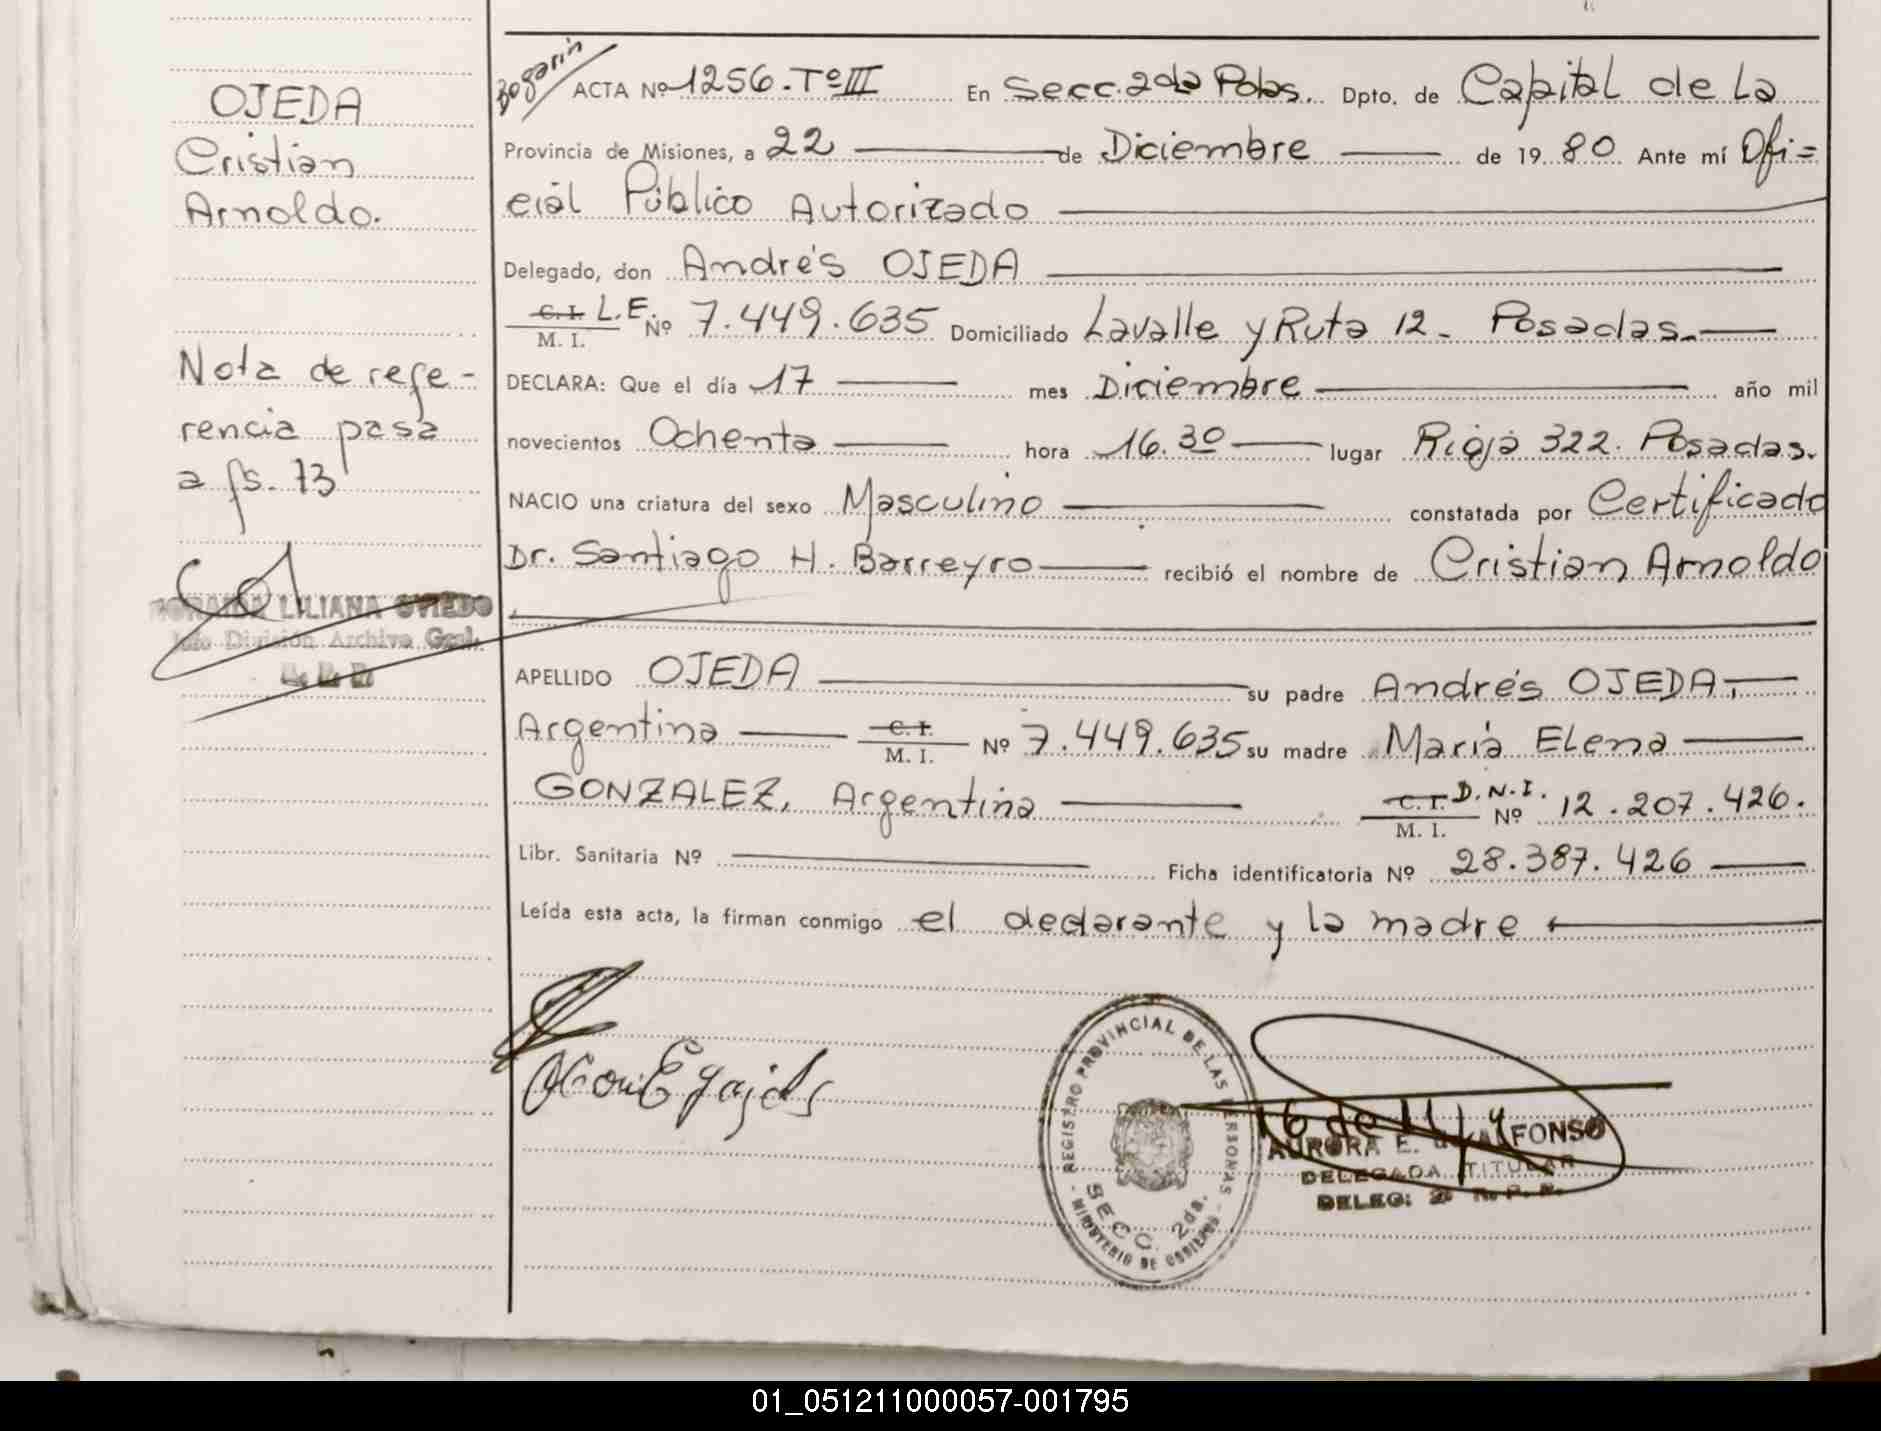 OJEDA
Cristian
Arnoldo.
Nota de refe-
rencia pasa
a fs. 73
LILIANA OVIEDO
Jefe División Archivo Gral.
Bogarin
ACTA Nº 1256. Tº III En Secc. 2da Pdas. Dpto. de Capital de La
Provincia de Misiones, a 22 de Diciembre de 19 80 Ante mí Ofi=
cial Público Autorizado
Delegado, don Andrés OJEDA
C. I. L.E. Nº 7.449.635 Domiciliado Lavalle y Ruta 12 - Posadas.
M. I.
DECLARA: Que el día 17 mes Diciembre año mil
novecientos Ochenta hora 16.30 lugar Rioja 322. Posadas.
NACIO una criatura del sexo Masculino constatada por Certificado
Dr. Santiago H. Barreyro recibió el nombre de Cristian Arnoldo
APELLIDO OJEDA su padre Andrés OJEDA,
Argentina C. I. Nº 7.449.635 su madre María Elena
M. I.
GONZALEZ, Argentina C. I. D.N.I. Nº 12.207.426.
M. I.
Libr. Sanitaria Nº Ficha identificatoria Nº 28.387.426
Leída esta acta, la firman conmigo el declarante y la madre
REGISTRO PROVINCIAL DE LAS PERSONAS
SECC. 2da.
MINISTERIO DE GOBIERNO
AURORA E. de ALFONSO
DELEGADA TITULAR
DELEG: 2ª R. P. P.
01_051211000057-001795